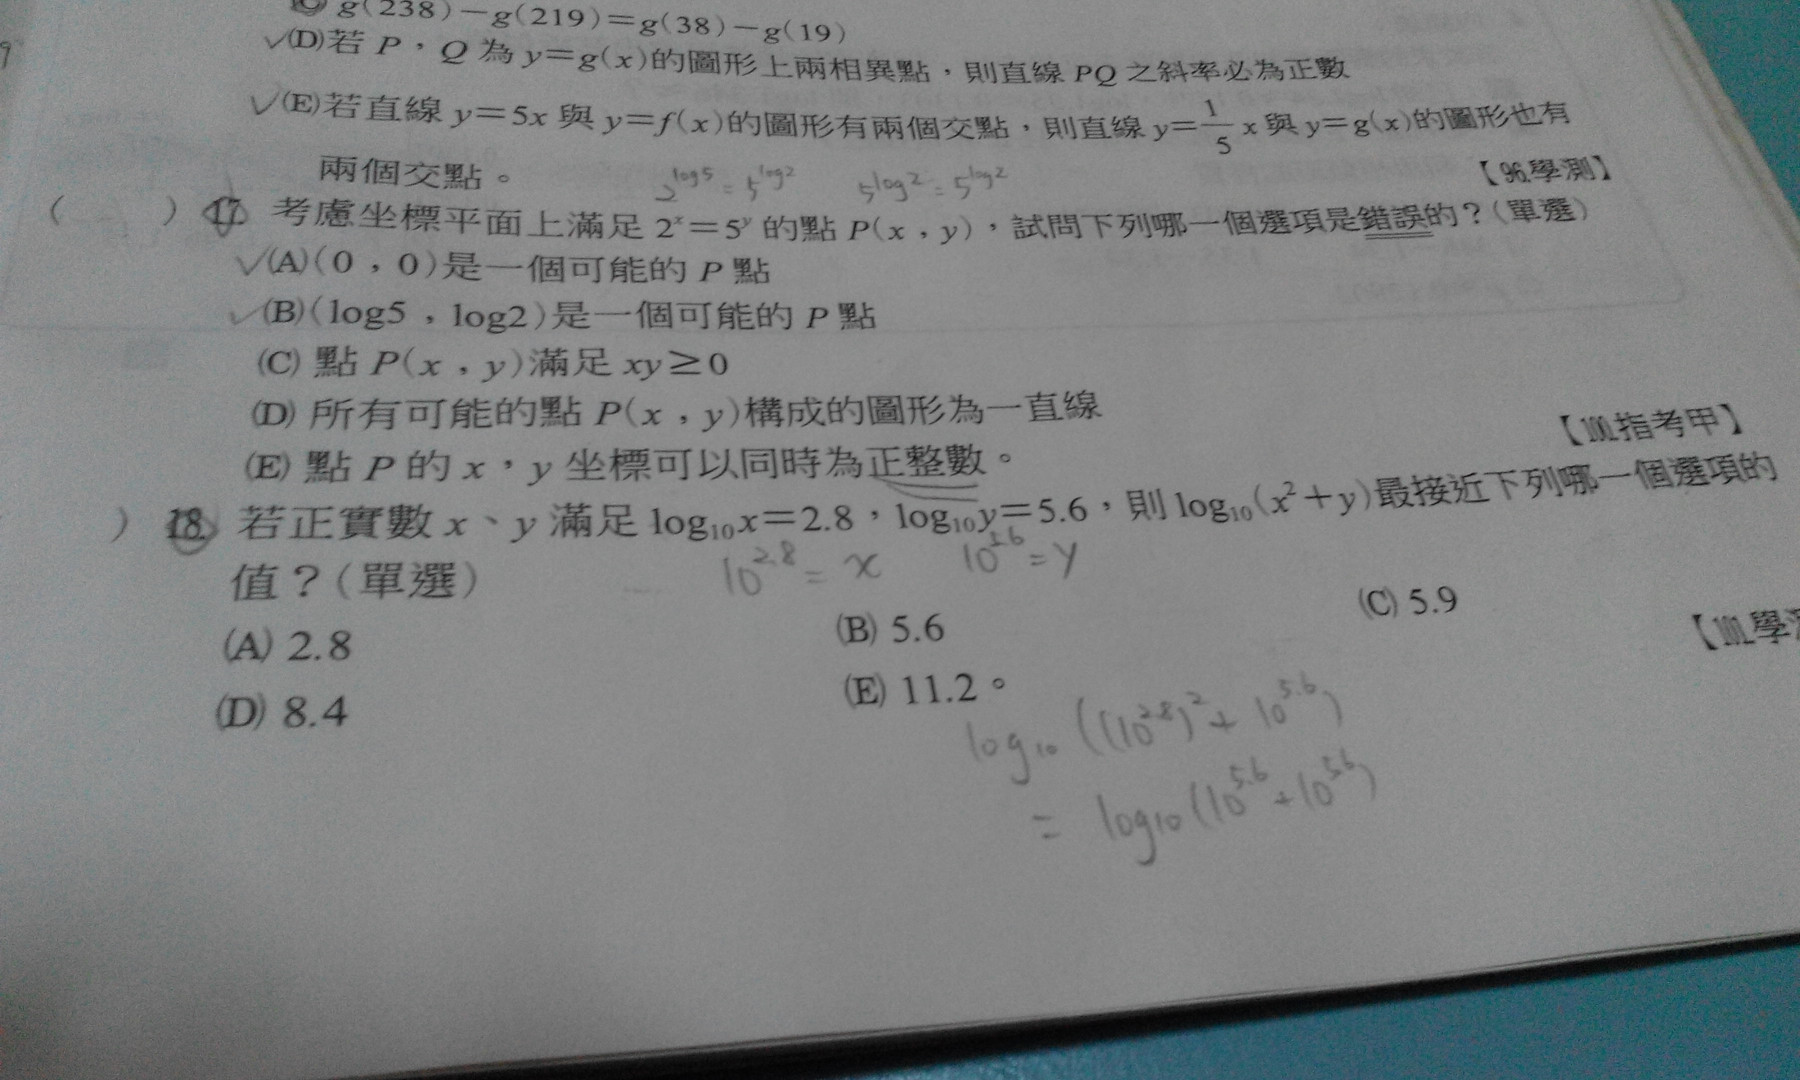 g(238)－g(219)＝g(38)－g(19)
✓(D)若 P，Q 為 y＝g(x)的圖形上兩相異點，則直線 PQ 之斜率必為正數
✓(E)若直線 y＝5x 與 y＝f(x)的圖形有兩個交點，則直線 y＝1/5 x 與 y＝g(x)的圖形也有
兩個交點。
【96.學測】
2^log5 = 5^log2 5^log2 = 5^log2
( ) 17. 考慮坐標平面上滿足 2^x＝5^y 的點 P(x，y)，試問下列哪一個選項是錯誤的？(單選)
✓(A)(0，0)是一個可能的 P 點
✓(B)(log5，log2)是一個可能的 P 點
(C) 點 P(x，y)滿足 xy≥0
(D) 所有可能的點 P(x，y)構成的圖形為一直線
(E) 點 P 的 x，y 坐標可以同時為正整數。
【100.指考甲】
) 18. 若正實數 x、y 滿足 log₁₀x＝2.8，log₁₀y＝5.6，則 log₁₀(x²＋y)最接近下列哪一個選項的
值？(單選)
10^2.8 = x 10^5.6 = y
(A) 2.8 (B) 5.6 (C) 5.9
(D) 8.4 (E) 11.2。
【101.學
log₁₀ ((10^2.8)² + 10^5.6)
= log₁₀ (10^5.6 + 10^5.6)